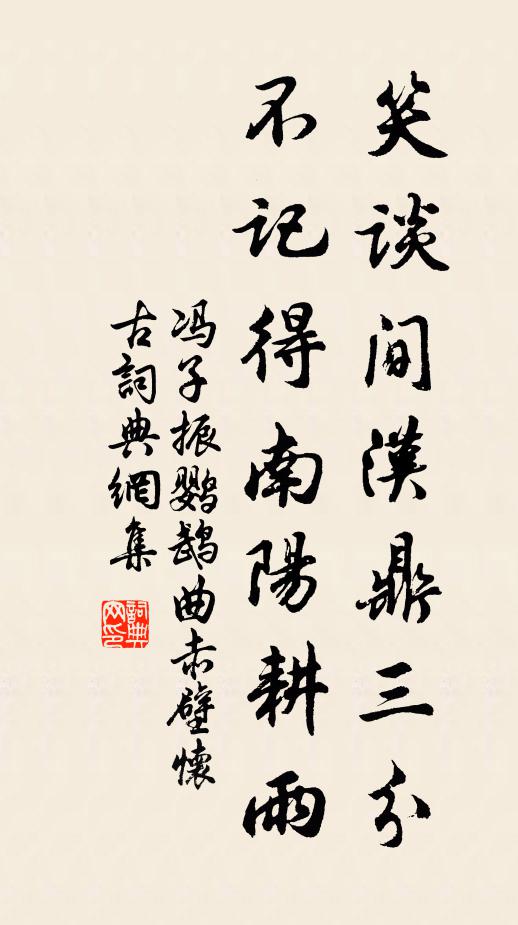 笑談间漢鼎三分
不记得南陽耕雨
冯子振鹦鹉曲赤壁懷
古詞典網集
詞典
网印